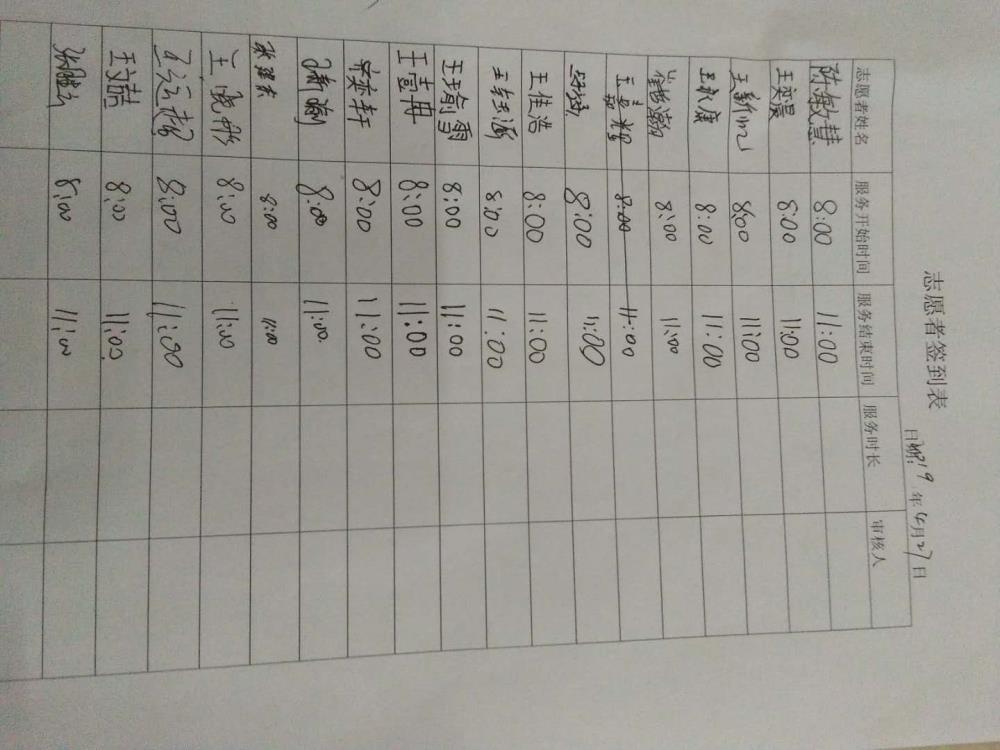 志愿者签到表
日期: 19 年 4月27日
志愿者姓名 服务开始时间 服务结束时间 服务时长 审核人
陈敏慧 8:00 11:00
王奕漫 8:00 11:00
王新 8:00 11:00
王永康 8:00 11:00
8:00 11:00
王 8:00 11:00
8:00 11:00
王佳浩 8:00 11:00
王 8:00 11:00
王瑜雪 8:00 11:00
王萱冉 8:00 11:00
8:00 11:00
8:00 11:00
张 8:00 11:00
王晓彤 8:00 11:00
8:00 11:00
王喆 8:00 11:00
张 8:00 11:00